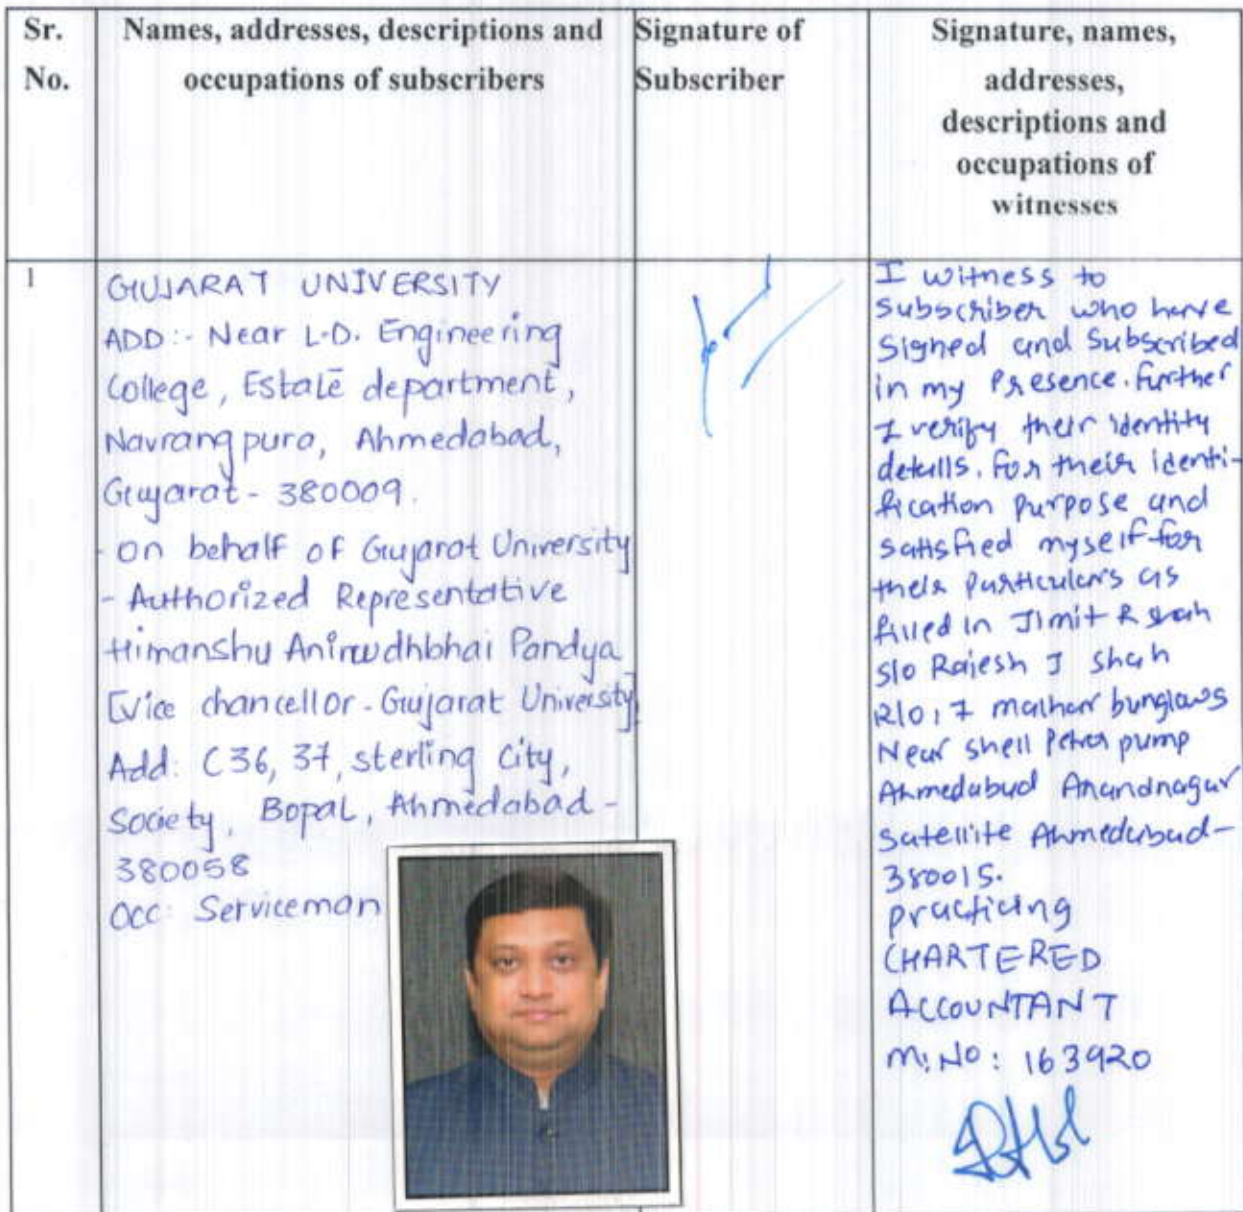 Sr.
No.
Names, addresses, descriptions and
occupations of subscribers
Signature of
Subscriber
Signature, names,
addresses,
descriptions and
occupations of
witnesses
1
GUJARAT UNIVERSITY
ADD:- Near L.D. Engineering
College, Estate department,
Navrangpura, Ahmedabad,
Gujarat - 380009.
- on behalf of Gujarat University
- Authorized Representative
Himanshu Anirudhbhai Pandya
[Vice chancellor - Gujarat University]
Add: C 36, 37, sterling City,
Society, Bopal, Ahmedabad -
380058
OCC: Serviceman
I witness to
Subscriber who have
Signed and Subscribed
in my Presence. further
I verify their identity
details. for their identi-
fication purpose and
satisfied myself for
their particulars as
filled in Jimit R shah
S/o Rajesh J shah
R/o, 7 malhar bunglows
Near shell Petrol pump
Ahmedabad Anandnagar
Satellite Ahmedabad-
380015.
practicing
CHARTERED
ACCOUNTANT
M.NO: 163920